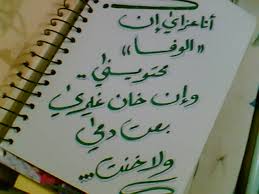 أنا عزاي إن
((الوفا))
محتويني..
وإن خان غيري
بعت دمي
ولا خنت...